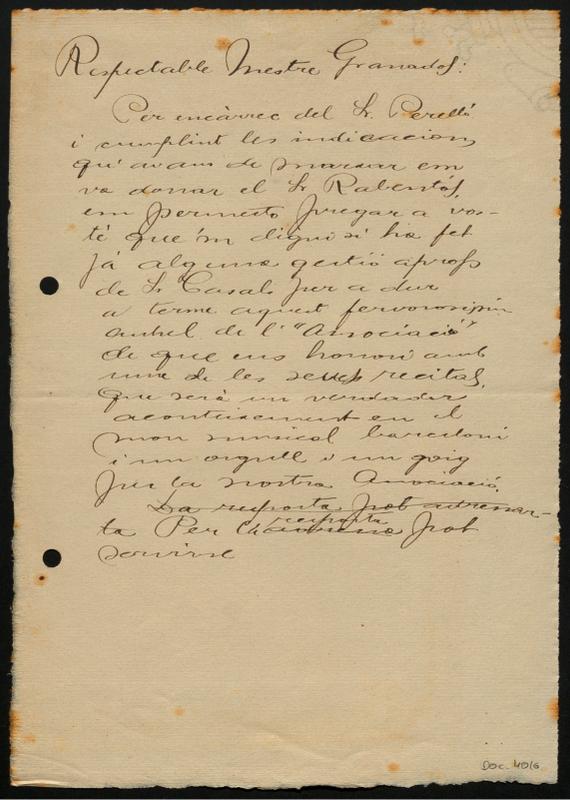 Respectable Mestre Granados:
Per encàrrec del Sr. Perelló
i cumplint les indicacions
qu'avans de marxar em
va donar el Sr Rabentós,
em permeto pregar a vos-
tè que'm digui si ha fet
já alguna gestió aprop
de Sr Casals per a dur
a terme aquest fervorosissim
anhel de l'"Associació"
de que ens honori amb
una de les seues recitals,
que serà un verdader
aconteixement en el
mon musical barceloní
i un orgull i un goig
per la nostra Associació.
La resposta pot adressar-
ta Per la resposta pot
servirse
DOC. 40/6